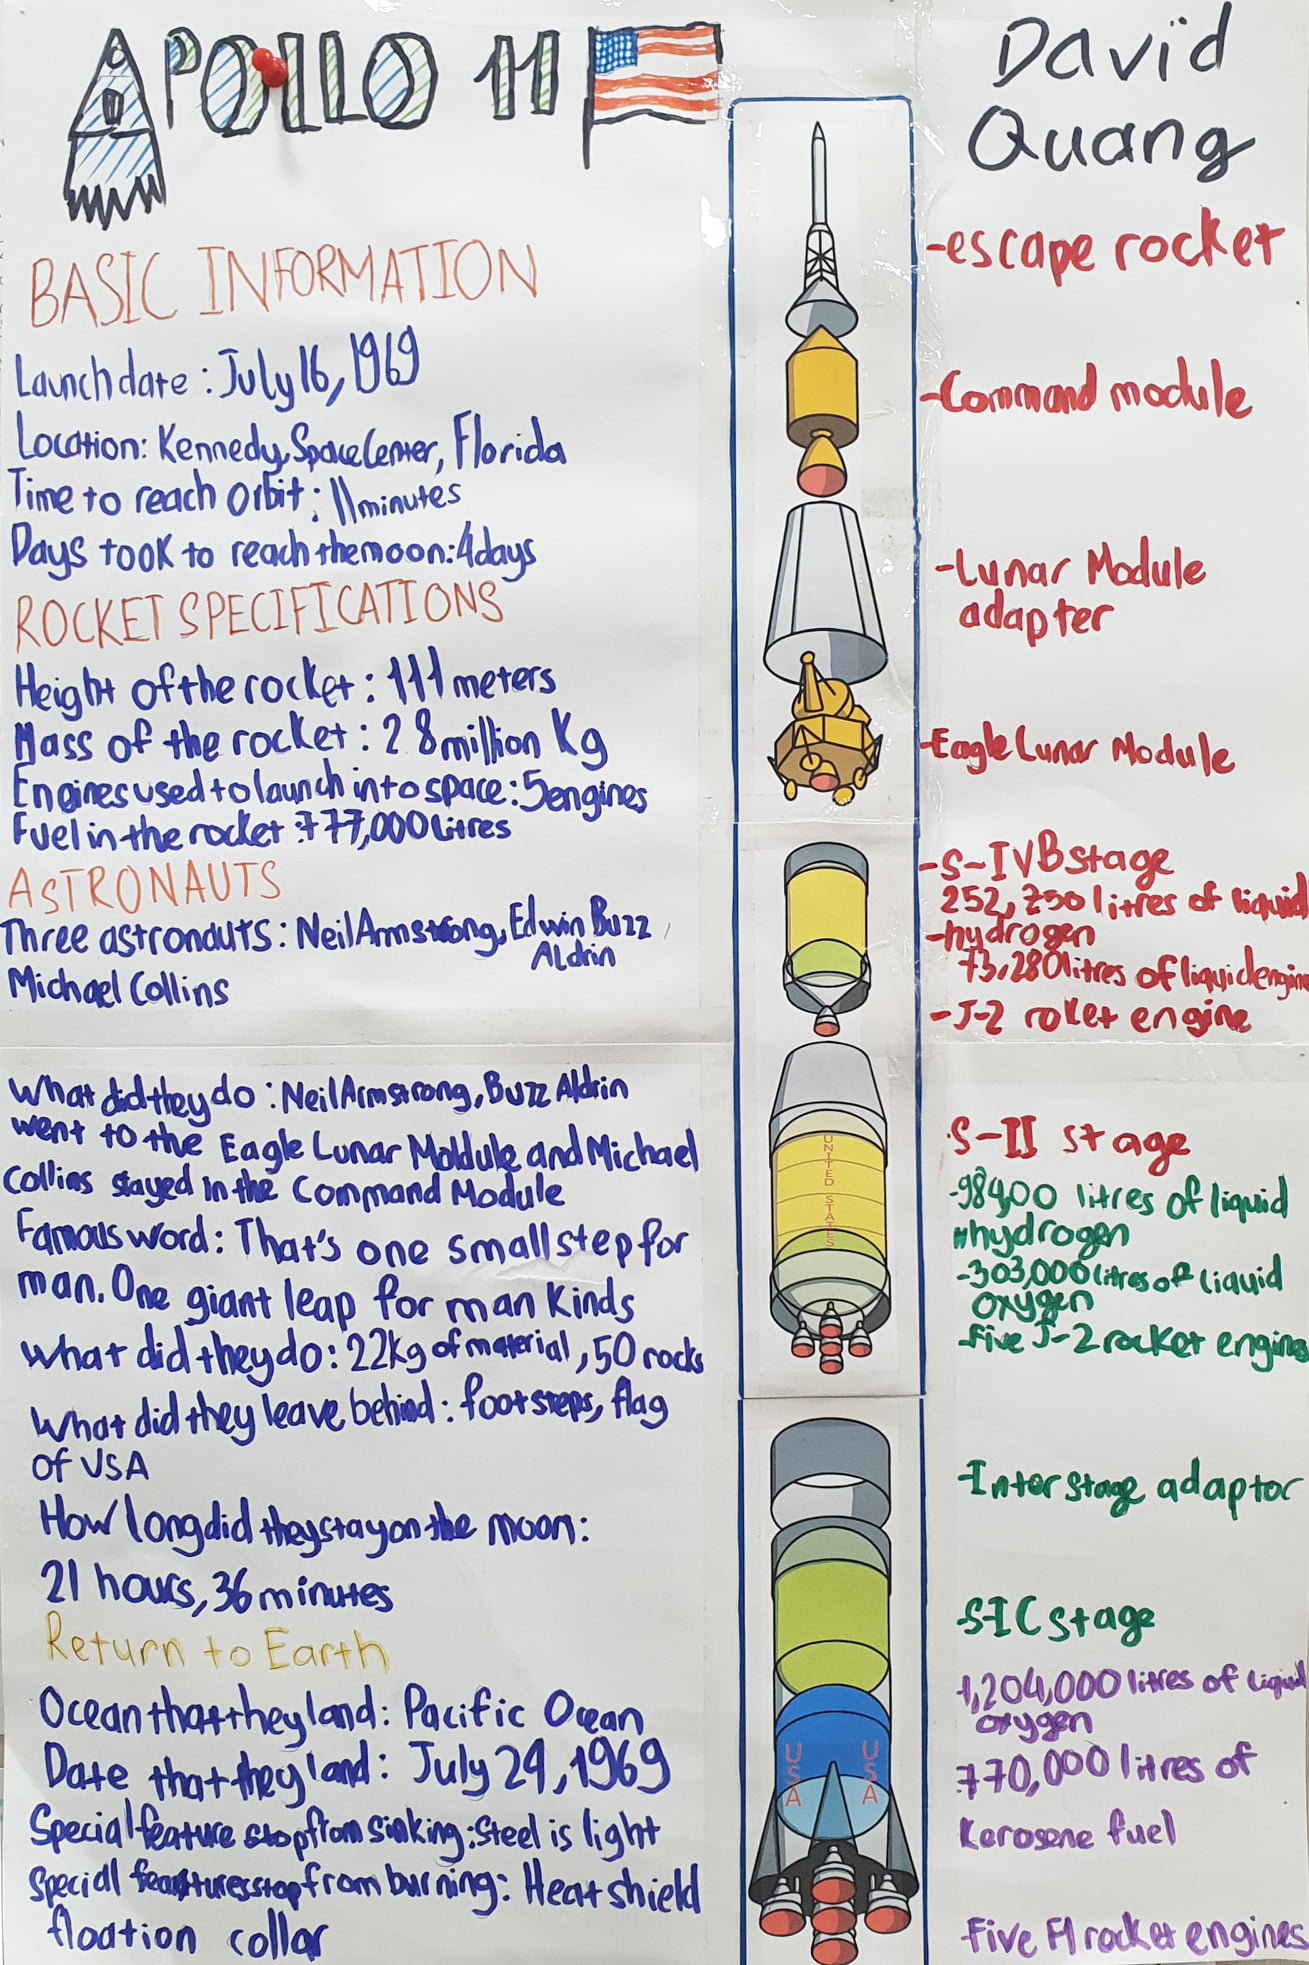 APOLLO 11
David
Quang
BASIC INFORMATION
Launch date : July 16, 1969
Location: Kennedy Space Center, Florida
Time to reach orbit : 11 minutes
Days took to reach the moon: 4 days
ROCKET SPECIFICATIONS
Height of the rocket : 111 meters
Mass of the rocket : 2.8 million Kg
Engines used to launch into space : 5 engines
Fuel in the rocket : 777,000 litres
ASTRONAUTS
Three astronauts : Neil Armstrong, Edwin Buzz
Aldrin
Michael Collins
What did they do : Neil Armstrong, Buzz Aldrin
went to the Eagle Lunar Moldule and Michael
Collins stayed in the Command Module
Famous word : That's one small step for
man. One giant leap for man kinds
What did they do : 22kg of material, 50 rocks
What did they leave behind : footsteps, flag
of USA
How long did they stay on the moon:
21 hours, 36 minutes
Return to Earth
Ocean that they land : Pacific Ocean
Date that they land : July 24, 1969
Special feature stop from sinking : Steel is light
Special features stop from burning : Heat shield
floation collar
-escape rocket
-Command module
-Lunar Module
adapter
-Eagle Lunar Module
-S-IVB stage
252,750 litres of liquid
-hydrogen
73,280 litres of liquid engine
-J-2 roket engine
-S-II stage
-98400 litres of liquid
hydrogen
-303,000 litres of liquid
oxygen
-Five J-2 rocket engines
-Inter stage adaptor
-S-IC stage
1,204,000 litres of liquid
oxygen
770,000 litres of
Kerosene fuel
-Five F1 rocket engines
UNITED STATES
USA
USA